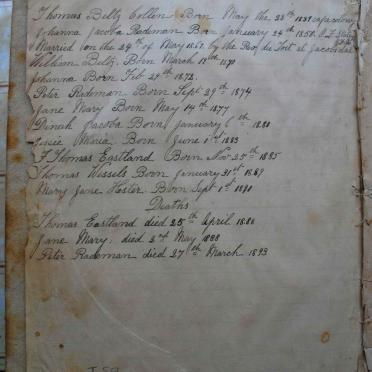 Thomas Beltz Collen Born May the 28th 1837 cape colony
Johanna Jacoba Rademan Born January 24th 1850.
Married on the 29th of May 1867. by the Rev. du Toit at Jacobsdal
William Beltz. Born March 18th 1870
Johanna Born Feb 27th 1872.
Peter Rademan Born Sept 29th 1874
Jane Mary Born May 14th 1877
Dinah Jacoba Born January 6th 1880
Maria. Born June 1st 1883
Thomas Eastland Born Nov 25th 1885
Thomas Wessels Born January 31st 1889
Mary Jane Hester. Born Sept 1st 1890
Deaths
Thomas Eastland died 25th April 1886
Jane Mary. died 2nd May 1888
Peter Rademan died 27th March 1893